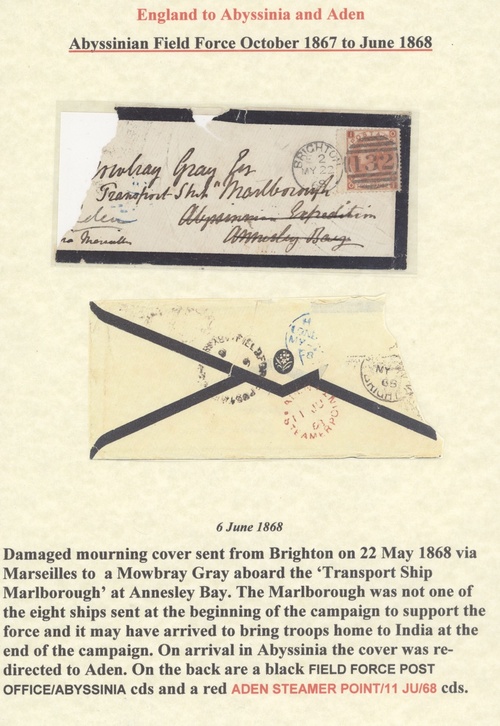 England to Abyssinia and Aden
Abyssinian Field Force October 1867 to June 1868
BRIGHTON
2
MY 22
68
132
Mowbray Gray Esq
"Transport Ship" Marlborough
Abyssinian Expedition
Annesley Bay
Aden
via Marseilles
MY
68
11 JU
STEAMER POINT
6 June 1868
Damaged mourning cover sent from Brighton on 22 May 1868 via
Marseilles to a Mowbray Gray aboard the ‘Transport Ship
Marlborough’ at Annesley Bay. The Marlborough was not one of
the eight ships sent at the beginning of the campaign to support the
force and it may have arrived to bring troops home to India at the
end of the campaign. On arrival in Abyssinia the cover was re-
directed to Aden. On the back are a black FIELD FORCE POST
OFFICE/ABYSSINIA cds and a red ADEN STEAMER POINT/11 JU/68 cds.